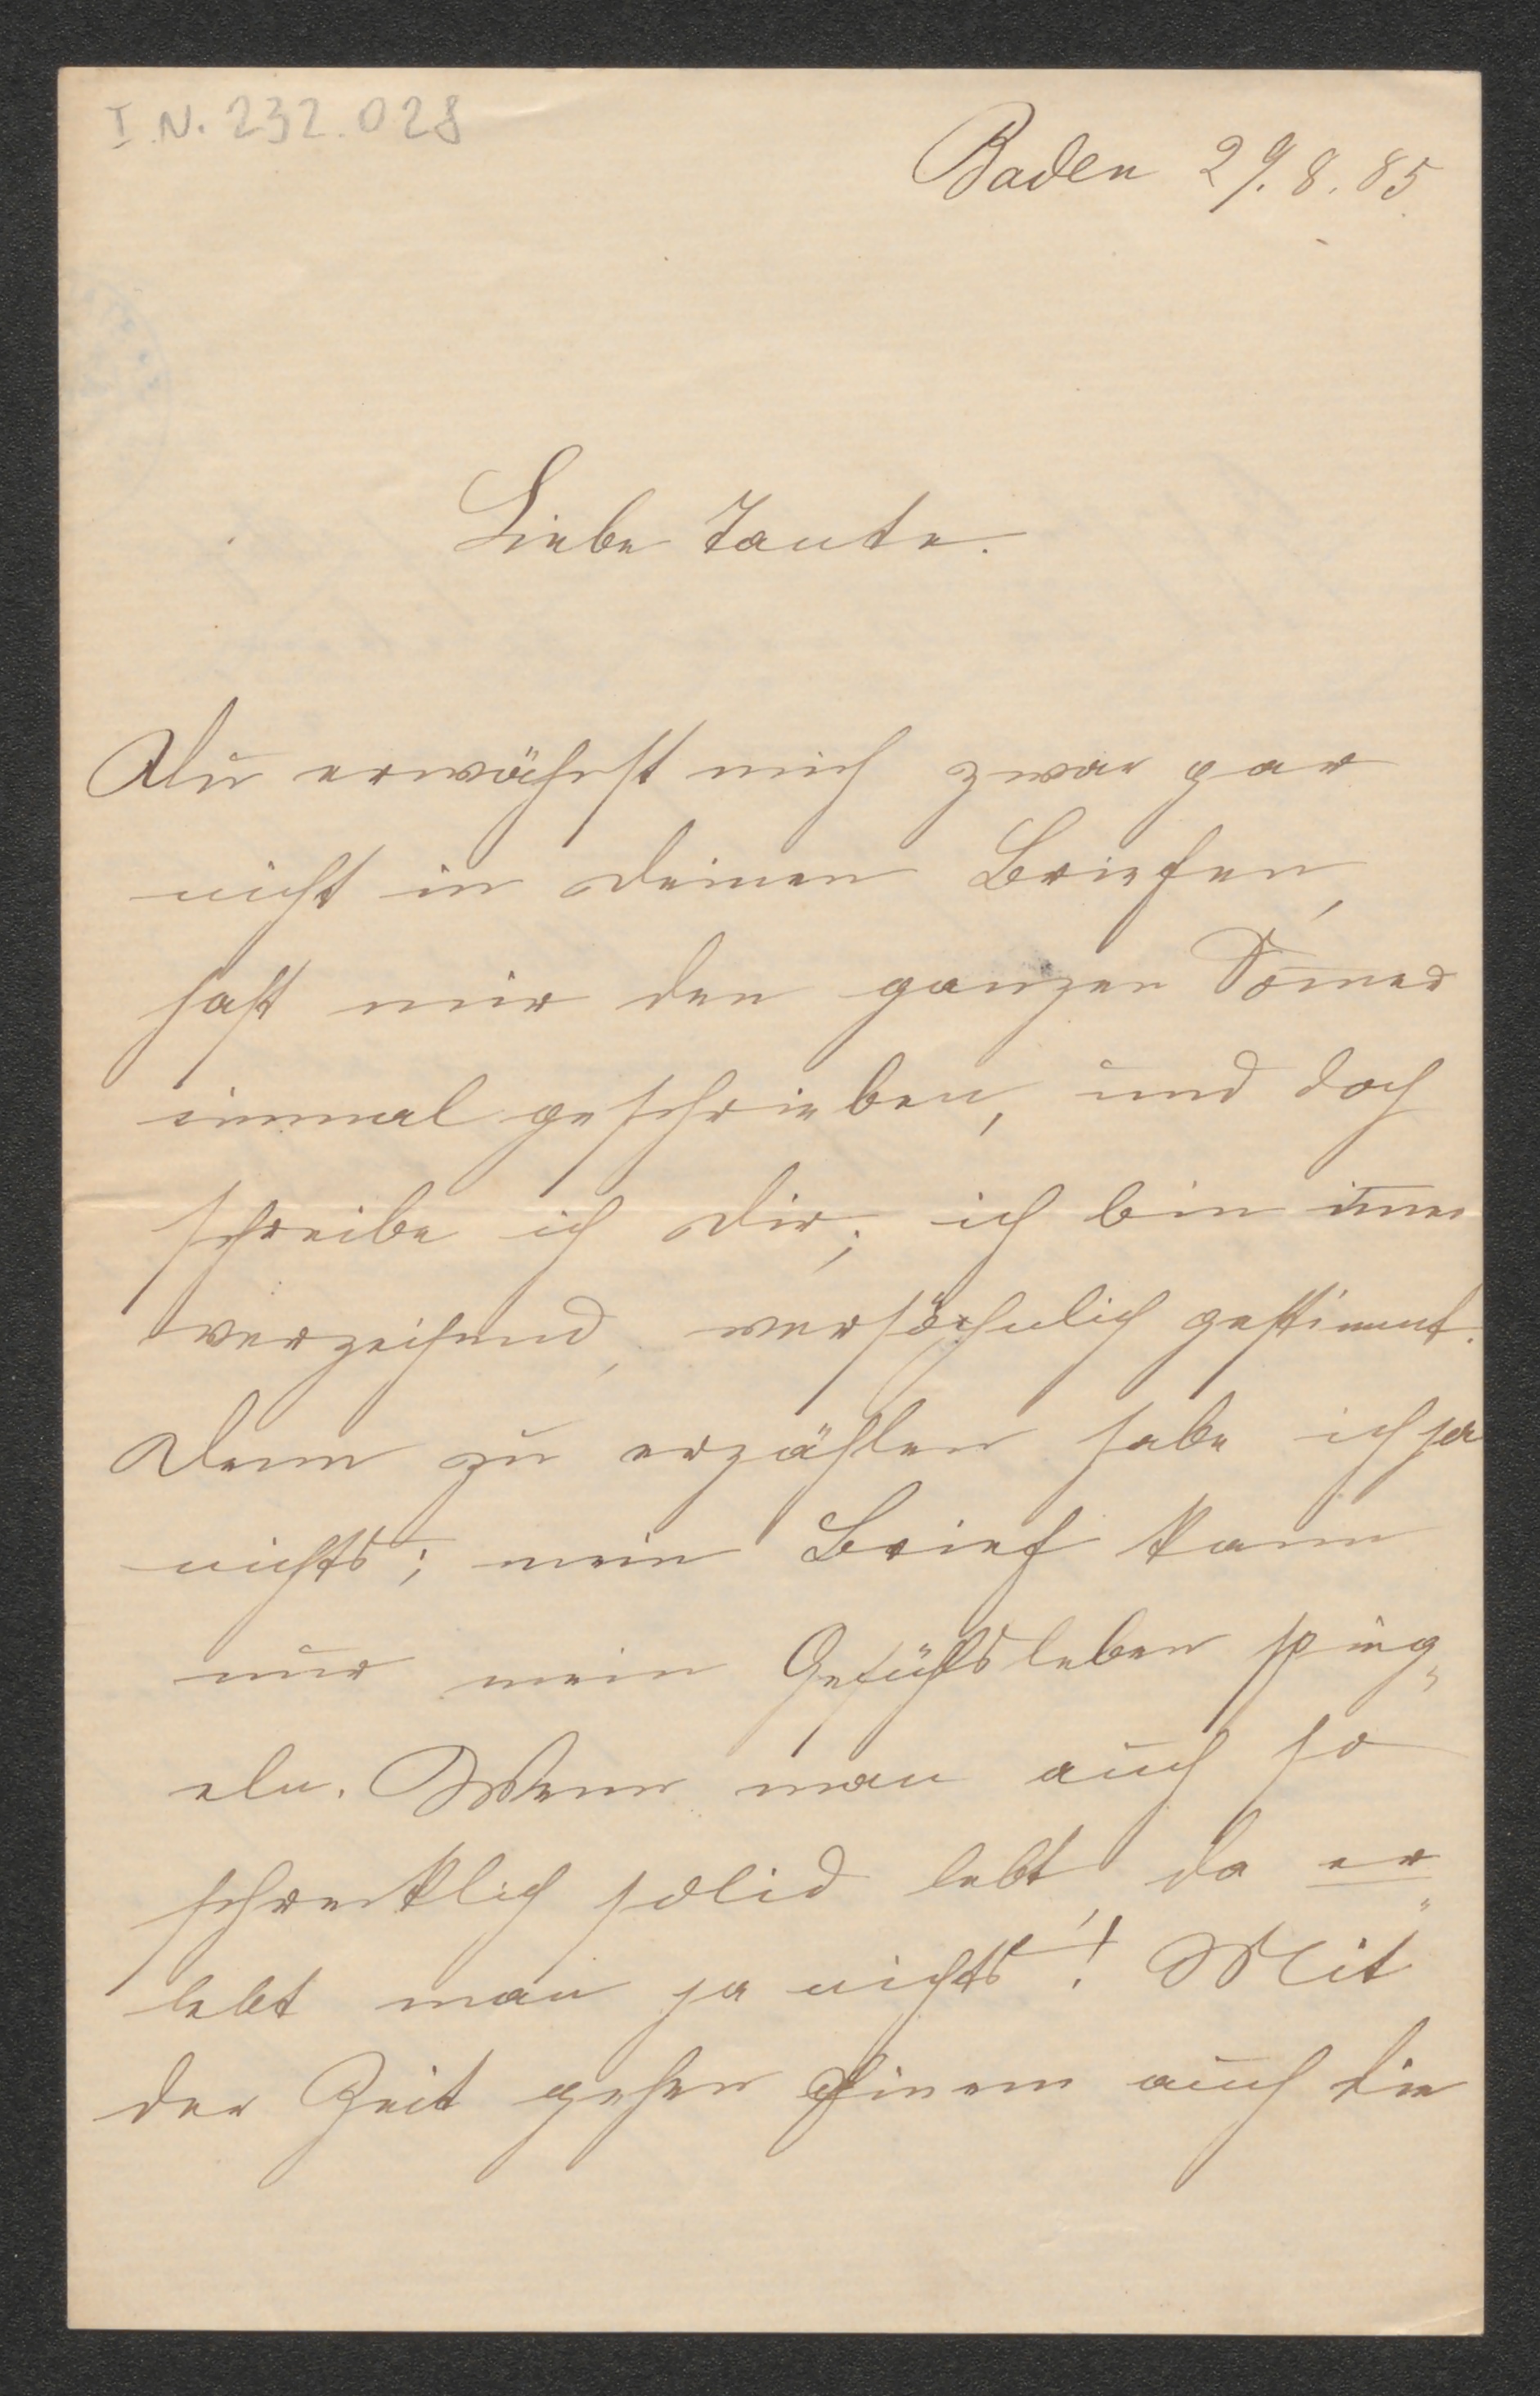 I.N. 232.028
Baden 29. 8. 85
Liebe Tante.
Du erwähnst mich zwar gar
nicht in Deinen Briefen,
hast mir den ganzen Som̅er
einmal geschrieben, und doch
schreibe ich Dir; ich bin im̅er
verzeihend, versöhnlich gestimmt.
Denn zu erzählen habe ich ja
nichts; mein Brief kann
nur mein Gefühlsleben spieg„
eln. Wenn man auch so
schrecklich solid lebt, da er„
lebt man ja nichts! Mit
der Zeit gehen Einem auch die